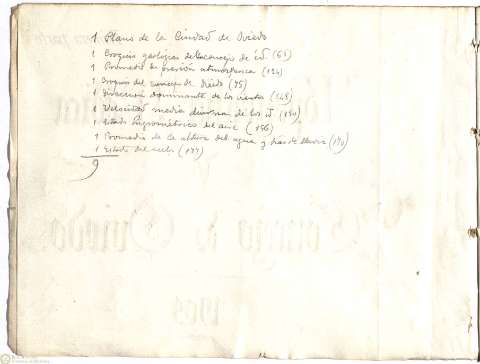 1 Plano de la Ciudad de Oviedo
1 Croquis geológico del concejo de id. (61)
1 Promedio de presión atmosférica (124)
1 Croquis del concejo de Oviedo (75)
1 Dirección dominante de los vientos (148)
1 Velocidad media diurna de los id (150)
1 Estado higrométrico del aire (156)
1 Promedio de la altura del agua y días de lluvia (170)
1 Estado del cielo (177)
9
Concejo de Oviedo
1909